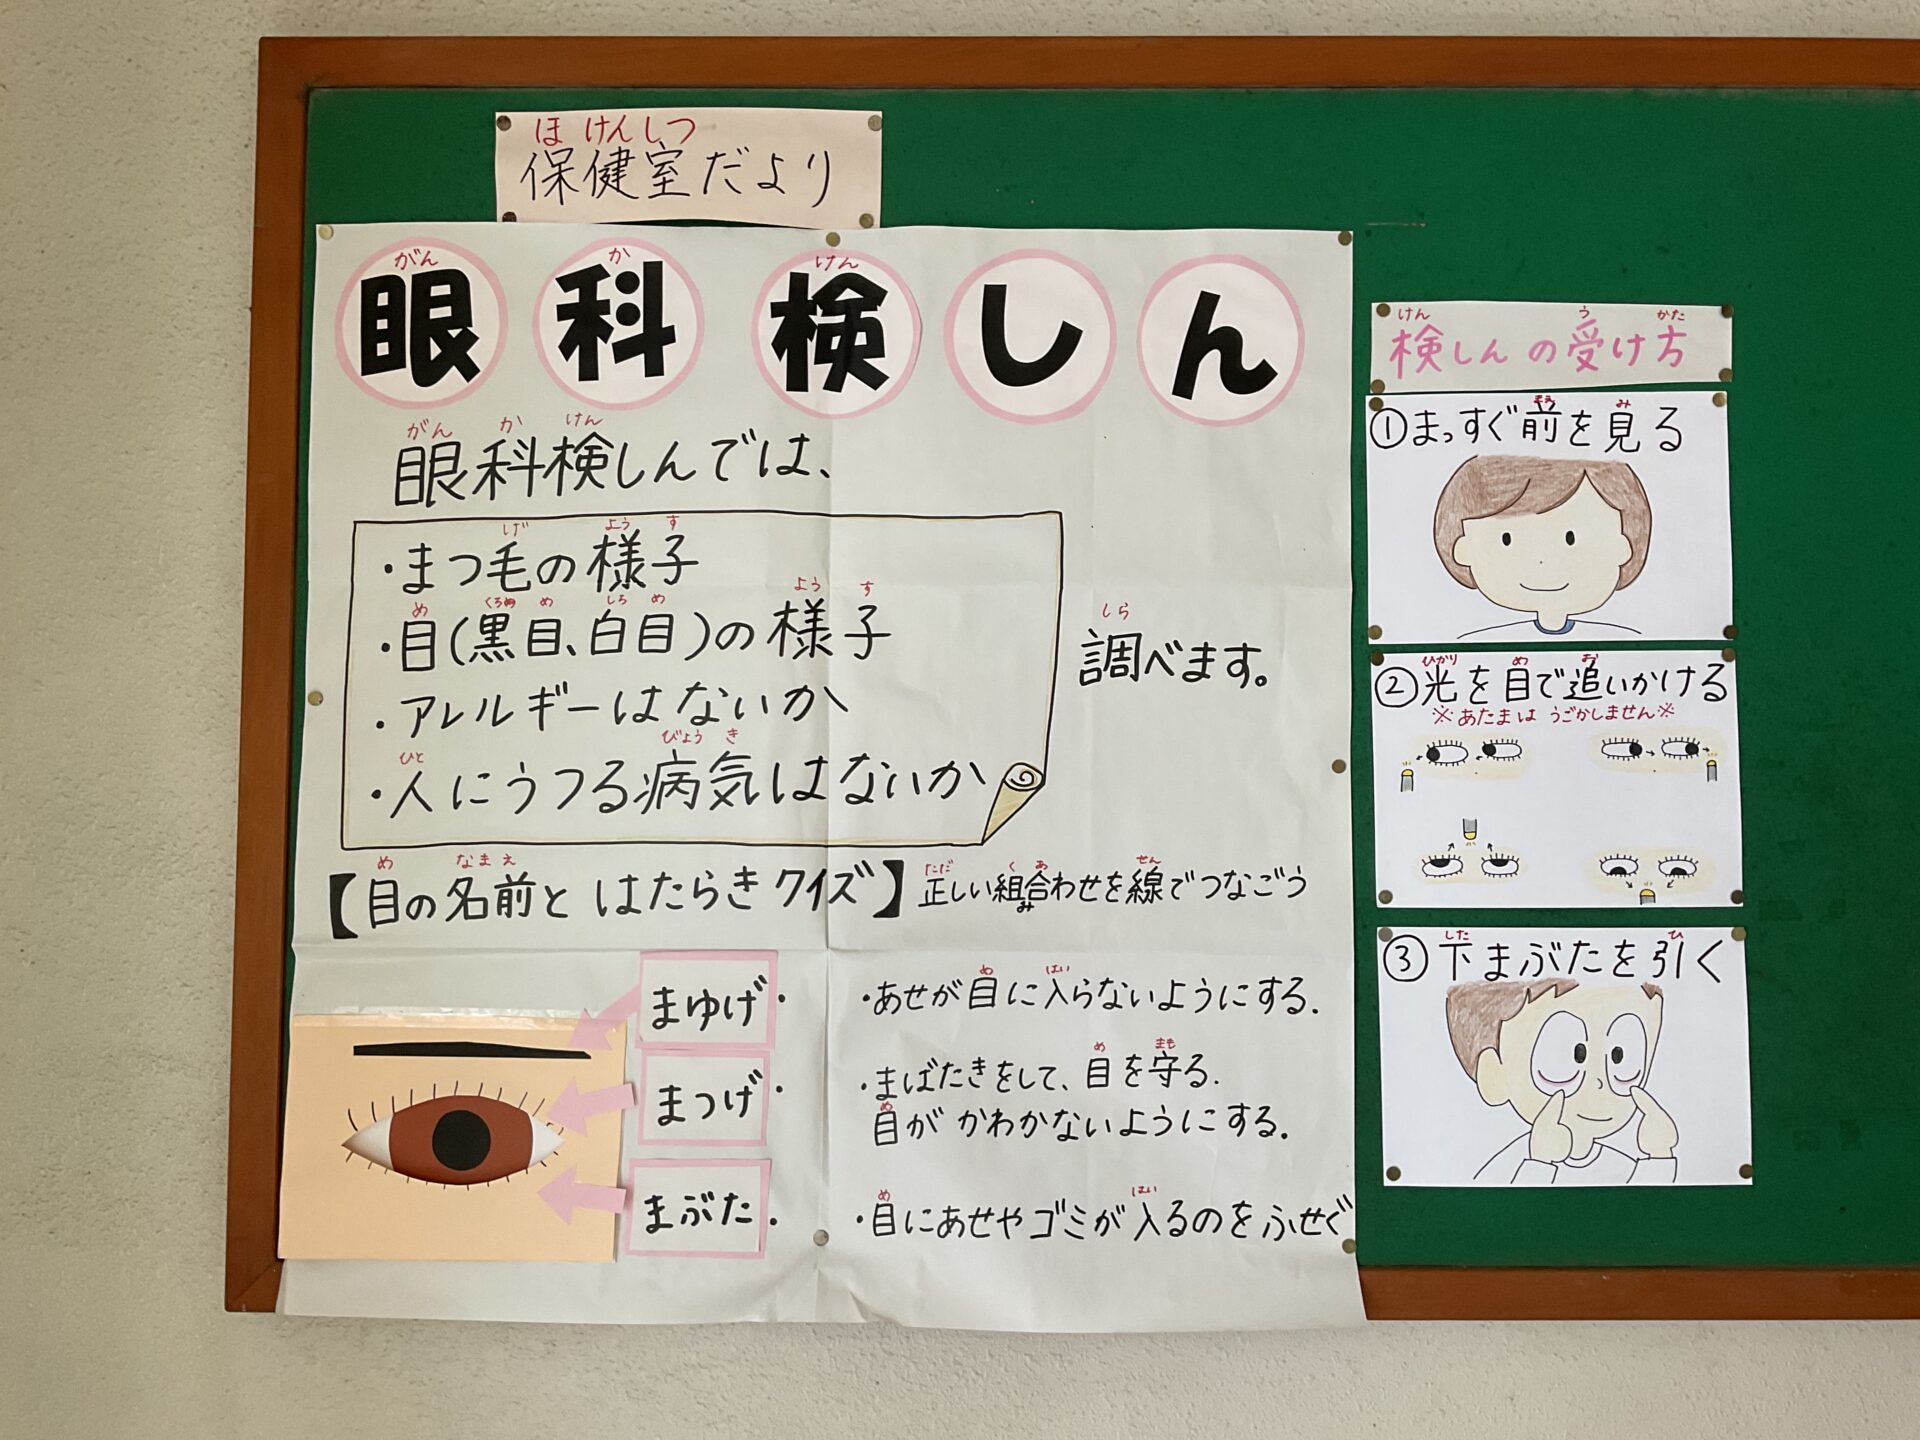 保健室だより
眼科検しん
眼科検しんでは、
・まつ毛の様子
・目(黒目、白目)の様子
・アレルギーはないか
・人にうつる病気はないか
調べます。
【目の名前と はたらき クイズ】正しい組み合わせを線でつなごう
まゆげ・
まつげ・
まぶた・
・あせが目に入らないようにする.
・まばたきをして、目を守る.
目が かわかないようにする.
・目にあせやゴミが入るのをふせぐ
検しんの受け方
①まっすぐ前を見る
②光を目で追いかける
※あたまは うごかしません※
③下まぶたを引く